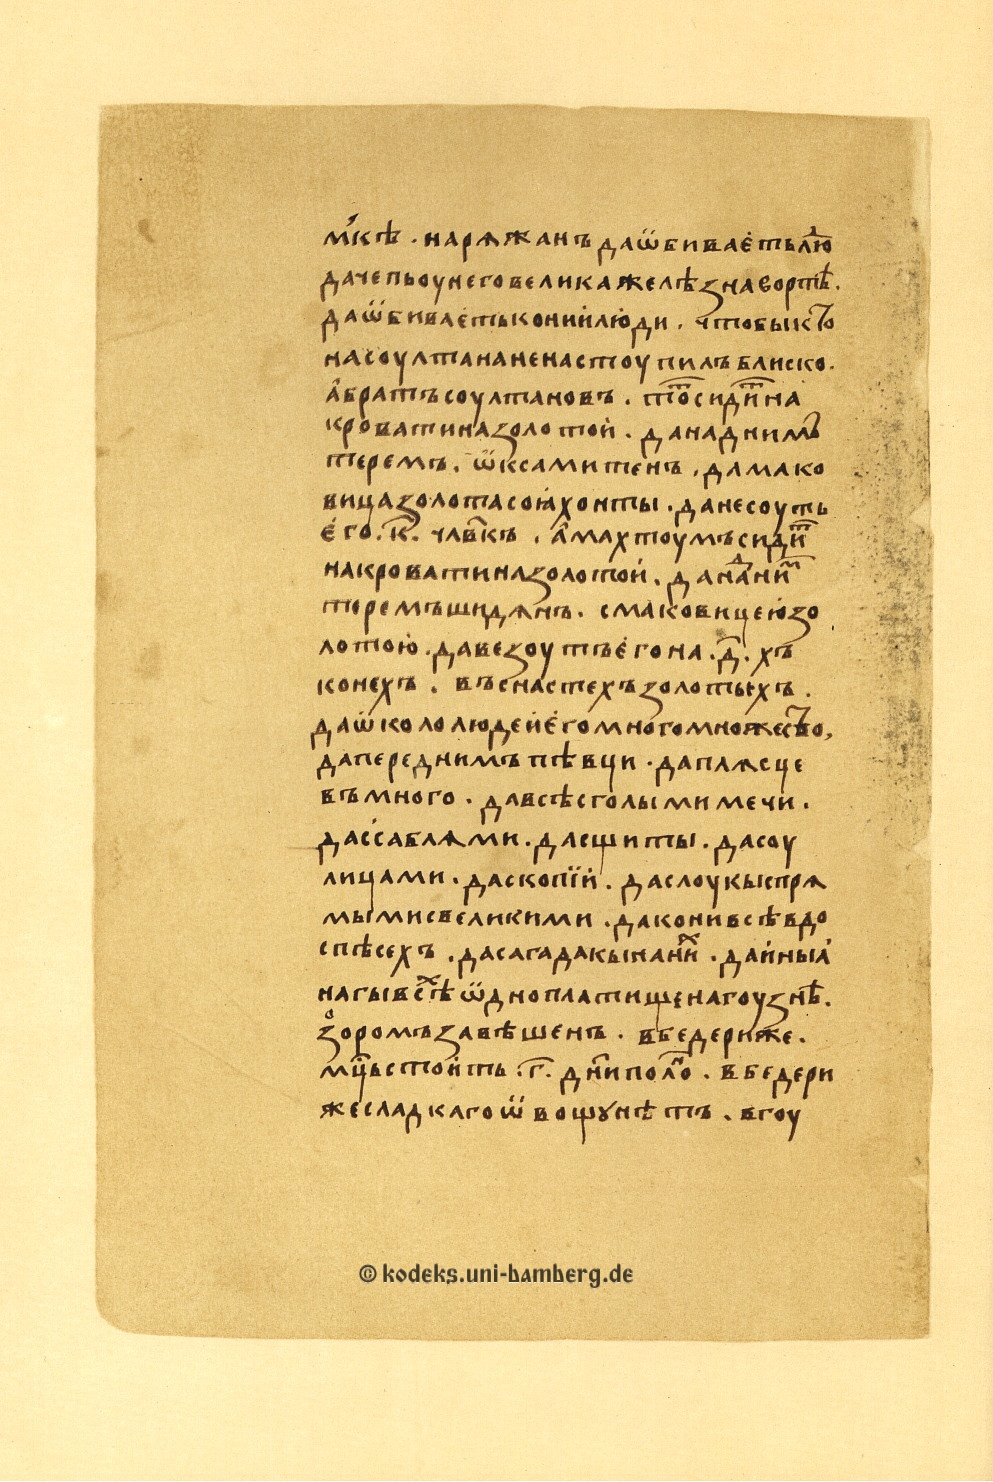 мⷭ҇кѣ · нарѧжанъ даѿбиваеть лю
да чепь оу него велика желѣзна во ртѣ.
да ѿбиваеть кони и люди · чтобы кто
на соултана не настоупилъ блиско.
а братъ соултановъ · тотъ сидитъ на
кровати на золотой · да над ним
теремъ · ѡксамитенъ · да мако
вица золота с ꙗхонты · да несоуть
его · к҃ · члвкъ · а махтоумъ сидитъ
на кровати на золотой · да над ним
теремъ шидѧнъ · с маковицею зо
лотою · да везоутъ его на · д҃ · хъ
конехъ · въ снастехъ золотыхъ ·
да ѡколо людей его много множество,
да перед нимъ пѣвци · да плѧсце
въ много · да всѣ с голыми мечи ·
да с саблѧми · да с щиты · да соу
лицами · да с копїи · да с лоукы с прѧ
мыми с великими · да кони всѣ в до
спѣсехъ · да сагадакы на них · да иныа
нагы всѣ ѡдно платище на гоузнѣ.
зоромъ завѣшенъ · в бедери же.
мцⷭ҇ь стоить · г҃ · дни полно · в бедери
же сладкаго ѿвощу нѣтъ · в гоу
© kodeks.uni-bamberg.de